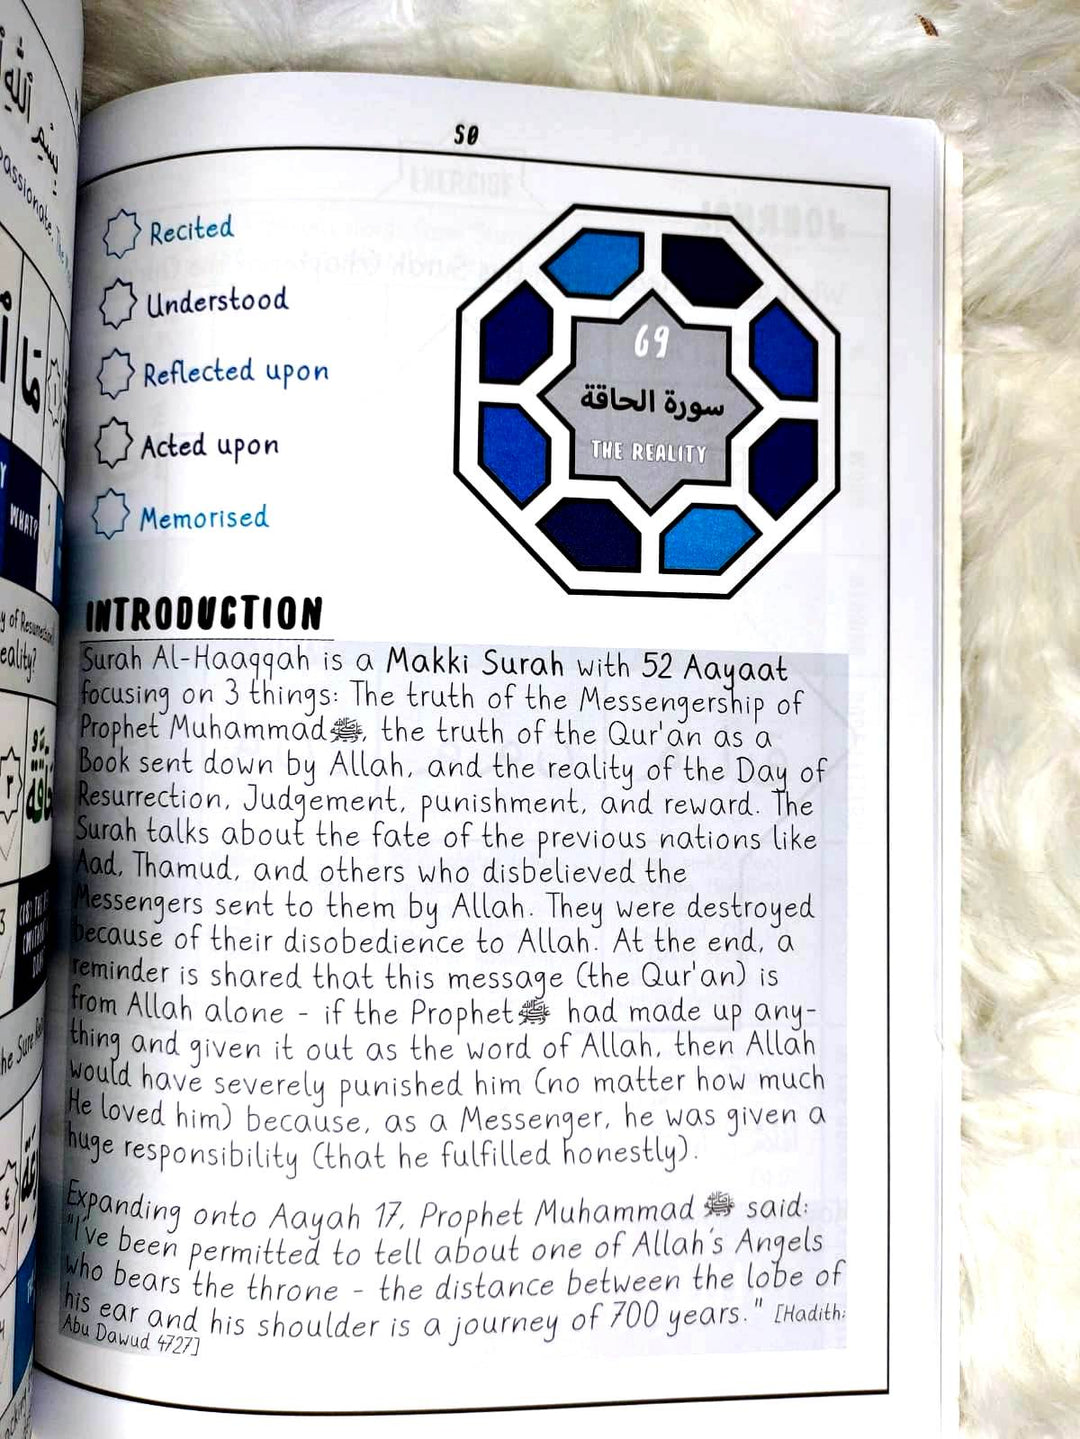 50
Recited
Understood
Reflected upon
Acted upon
Memorised
69
سورة الحاقة
THE REALITY
INTRODUCTION
Surah Al-Haaqqah is a Makki Surah with 52 Aayaat
focusing on 3 things: The truth of the Messengership of
Prophet Muhammad ﷺ, the truth of the Qur'an as a
Book sent down by Allah, and the reality of the Day of
Resurrection, Judgement, punishment, and reward. The
Surah talks about the fate of the previous nations like
Aad, Thamud, and others who disbelieved the
Messengers sent to them by Allah. They were destroyed
because of their disobedience to Allah. At the end, a
reminder is shared that this message (the Qur'an) is
from Allah alone - if the Prophet ﷺ had made up any-
thing and given it out as the word of Allah, then Allah
would have severely punished him (no matter how much
He loved him) because, as a Messenger, he was given a
huge responsibility (that he fulfilled honestly).
Expanding onto Aayah 17, Prophet Muhammad ﷺ said:
"I've been permitted to tell about one of Allah's Angels
who bears the throne - the distance between the lobe of
his ear and his shoulder is a journey of 700 years." [Hadith:
Abu Dawud 4727]
بِسْمِ ٱللَّهِ
WHAT?